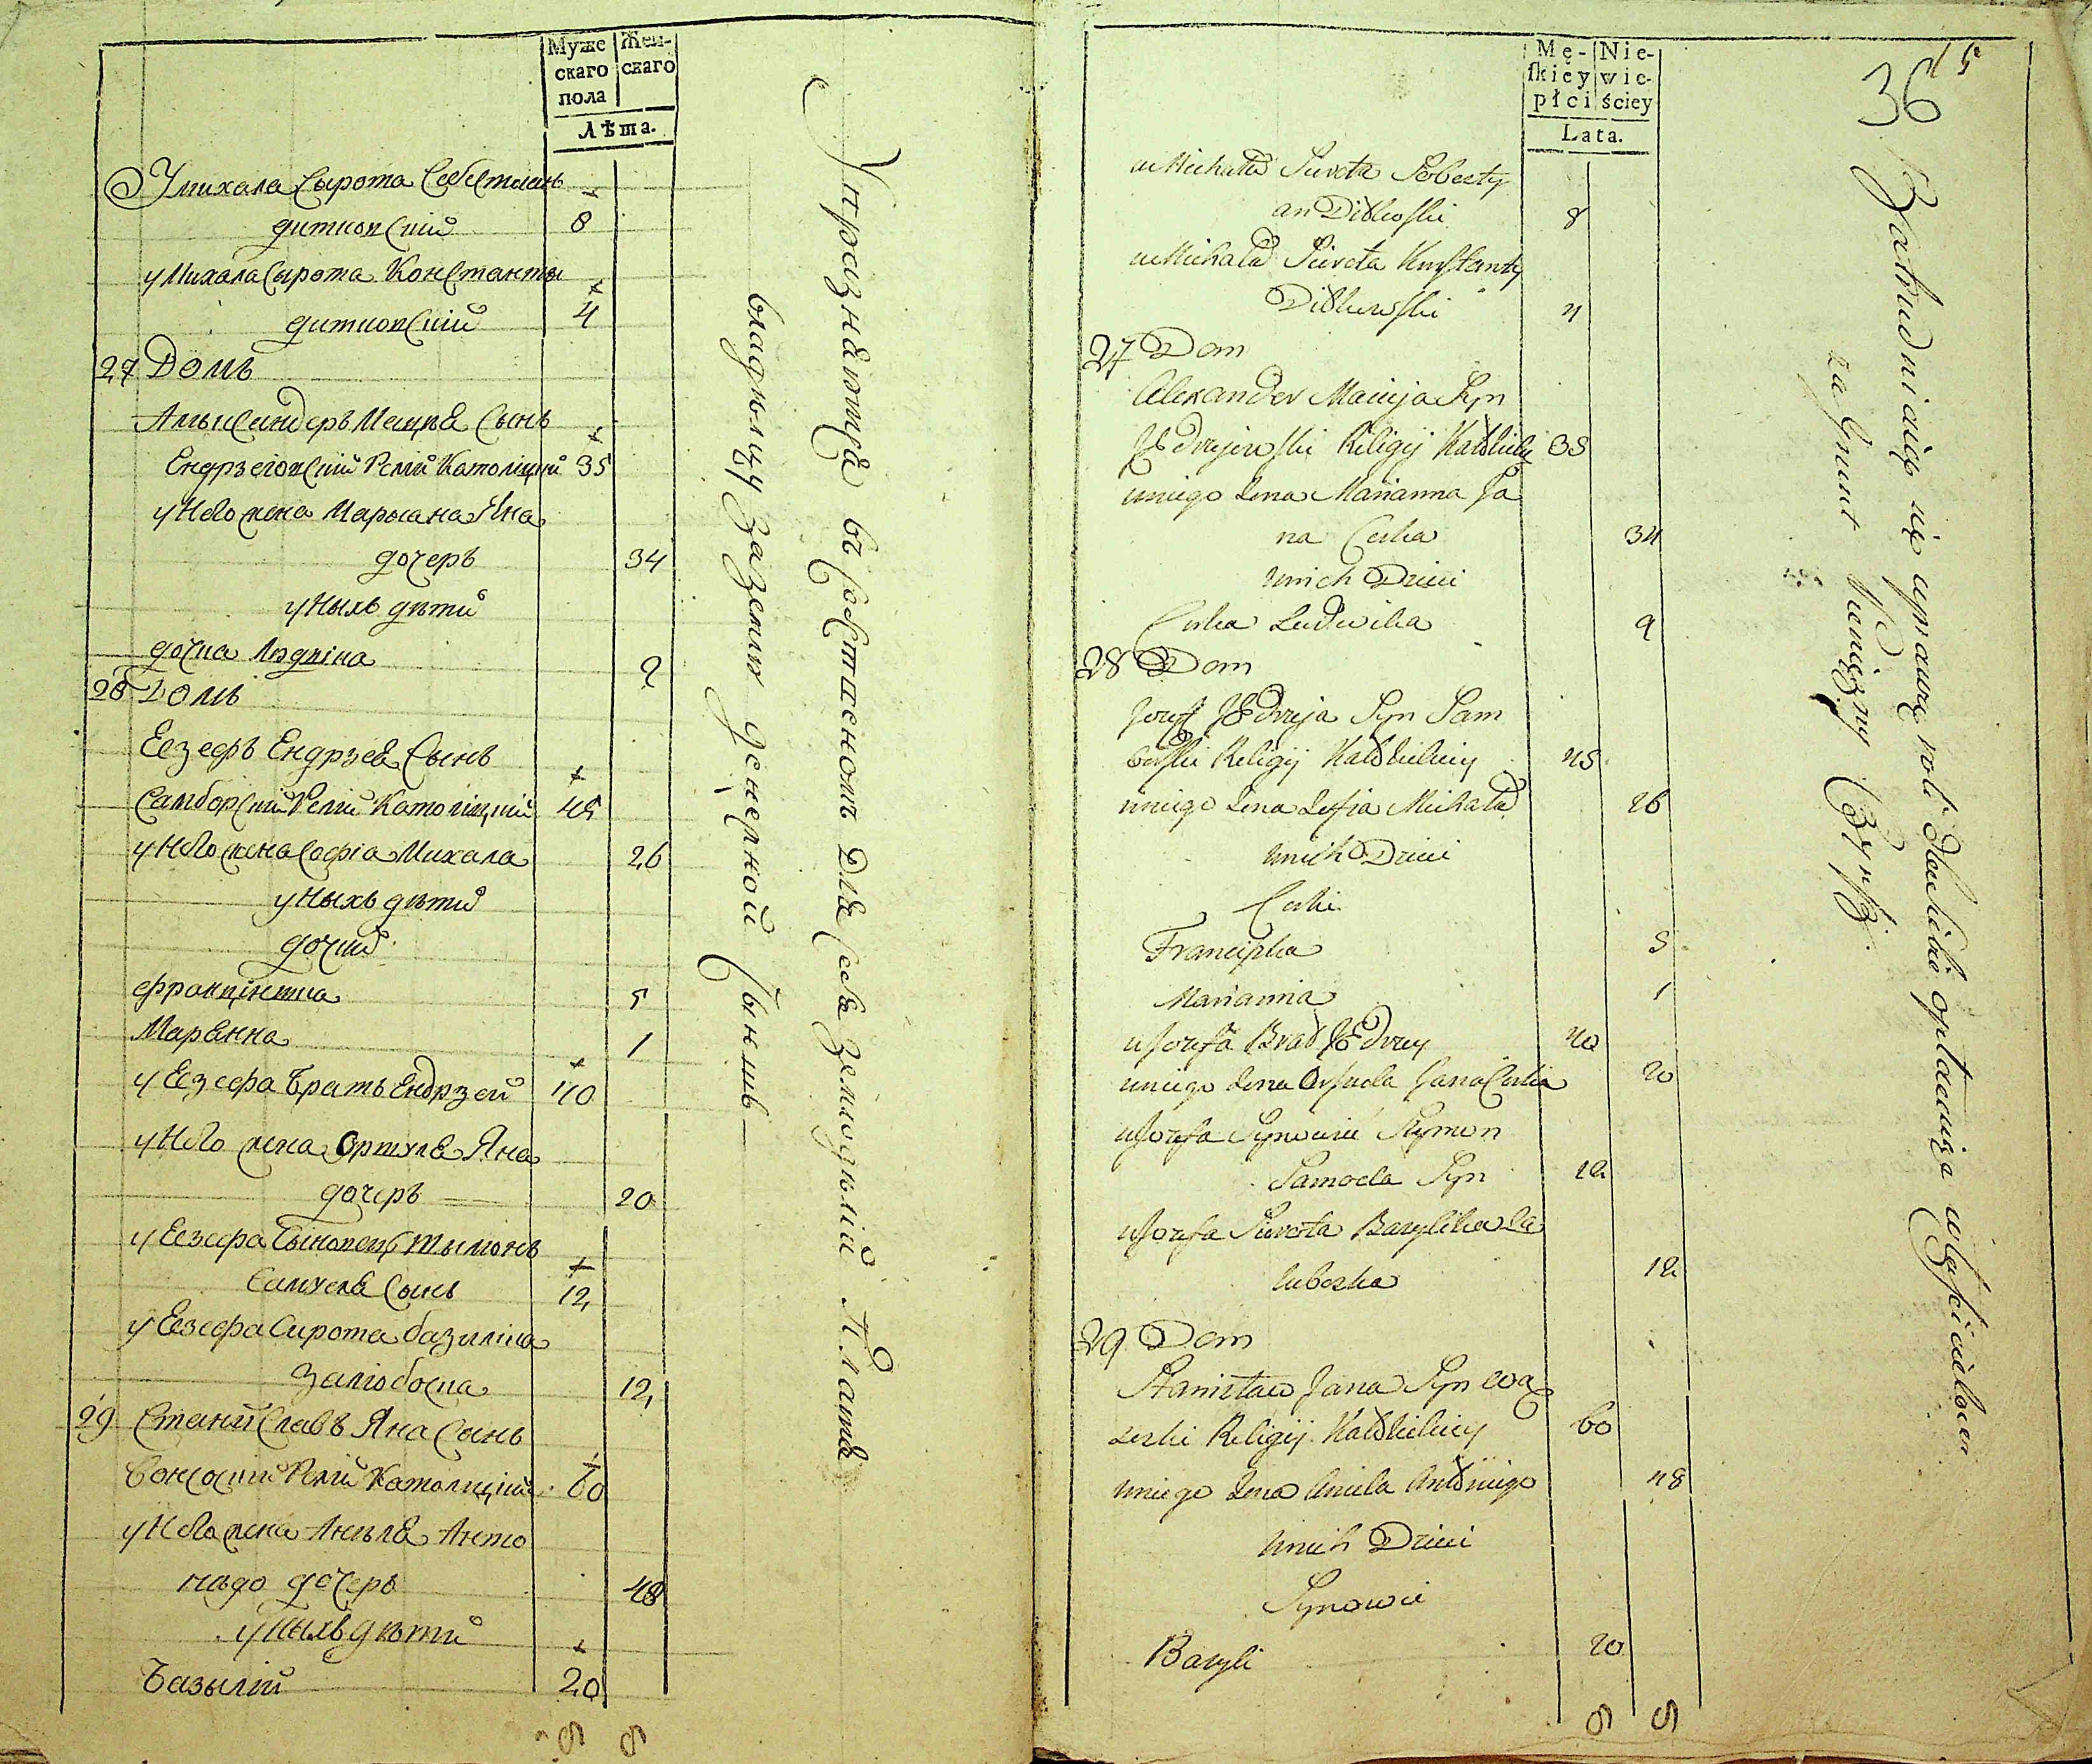 Муже Жен-
скаго скаго
пола
Лѣта.
У михала Сырота Себестиянъ
дитковский 8
у Михала Сырота Константы
дитковский 4
27 Домъ
Алыксандеръ Мацея Сынъ
Ендрзеіовский Релии Католицкий 35
у Него жена Марыана Яна
дочеръ 34
у Ныхъ дѣти
дочка Людвіка 9
28 Домъ
Еезефъ Ендрзея Сынъ
Самборский Релии Католицкий 45
у Него жена Софіа Михала 26
у Ныхъ дѣти
дочки
францішка 5
Марянна 1
у Еезефа Братъ Ендрзей 40
у Него жена Оршуля Яна
дочеръ 20
у Еезефа Сыновец Шымонъ
Самуеля Сынъ 12
у Еезефа Сирота базиліка
Залюбоска 12
29 Станиславъ Яна Сынъ
Релии Католицкий 60
у Него жена Анѣля Анто
нѣго дочеръ 48
у Ныхъ дѣти
Базылій 20
6 6
Упражняется въ разстаеномъ для себя земледѣлій Платя
владѣлцу за землю денежной Чыншъ
Mę- Nie-
skiey wie-
płci ściey
Lata.
36
15
u Michała Sierota Sobesty
an Ditkoski 8
u Michała Sierota Kostanty
Ditkowski 4
27 Dom
Alexander Macieja Syn
JEdrzejewski Religij Katolicky 35
u niego żona Marianna Ja
na Corka 34
u nich Dzieci
Corka Ludwika 9
28 Dom
Jozef JEdrzeja Syn Sam
borski Religij Katolickiey 45
u niego żona Zofia Michała 26
u nich Dzieci
Corki
Franciszka 5
Marianna 1
u Jozefa Brat JEdrzey 40
u niego żona Orszula Jana Corka 20
u Jozefa Synowiec Szymon
Samoela Syn 12
u Jozefa Sierota Bazylika Za
luboska 12
29 Dom
Stanisław Jana Syn Wą
soski Religij Katolickiey 60
u niego żona Aniela Antoniego 48
u nich Dzieci
Synowie
Bazyli 20
6 6
Zatrudniaią się uprawą roli dla siebie opłacaiąc właścicielowi
za Grunt Pieniężny Czynsz